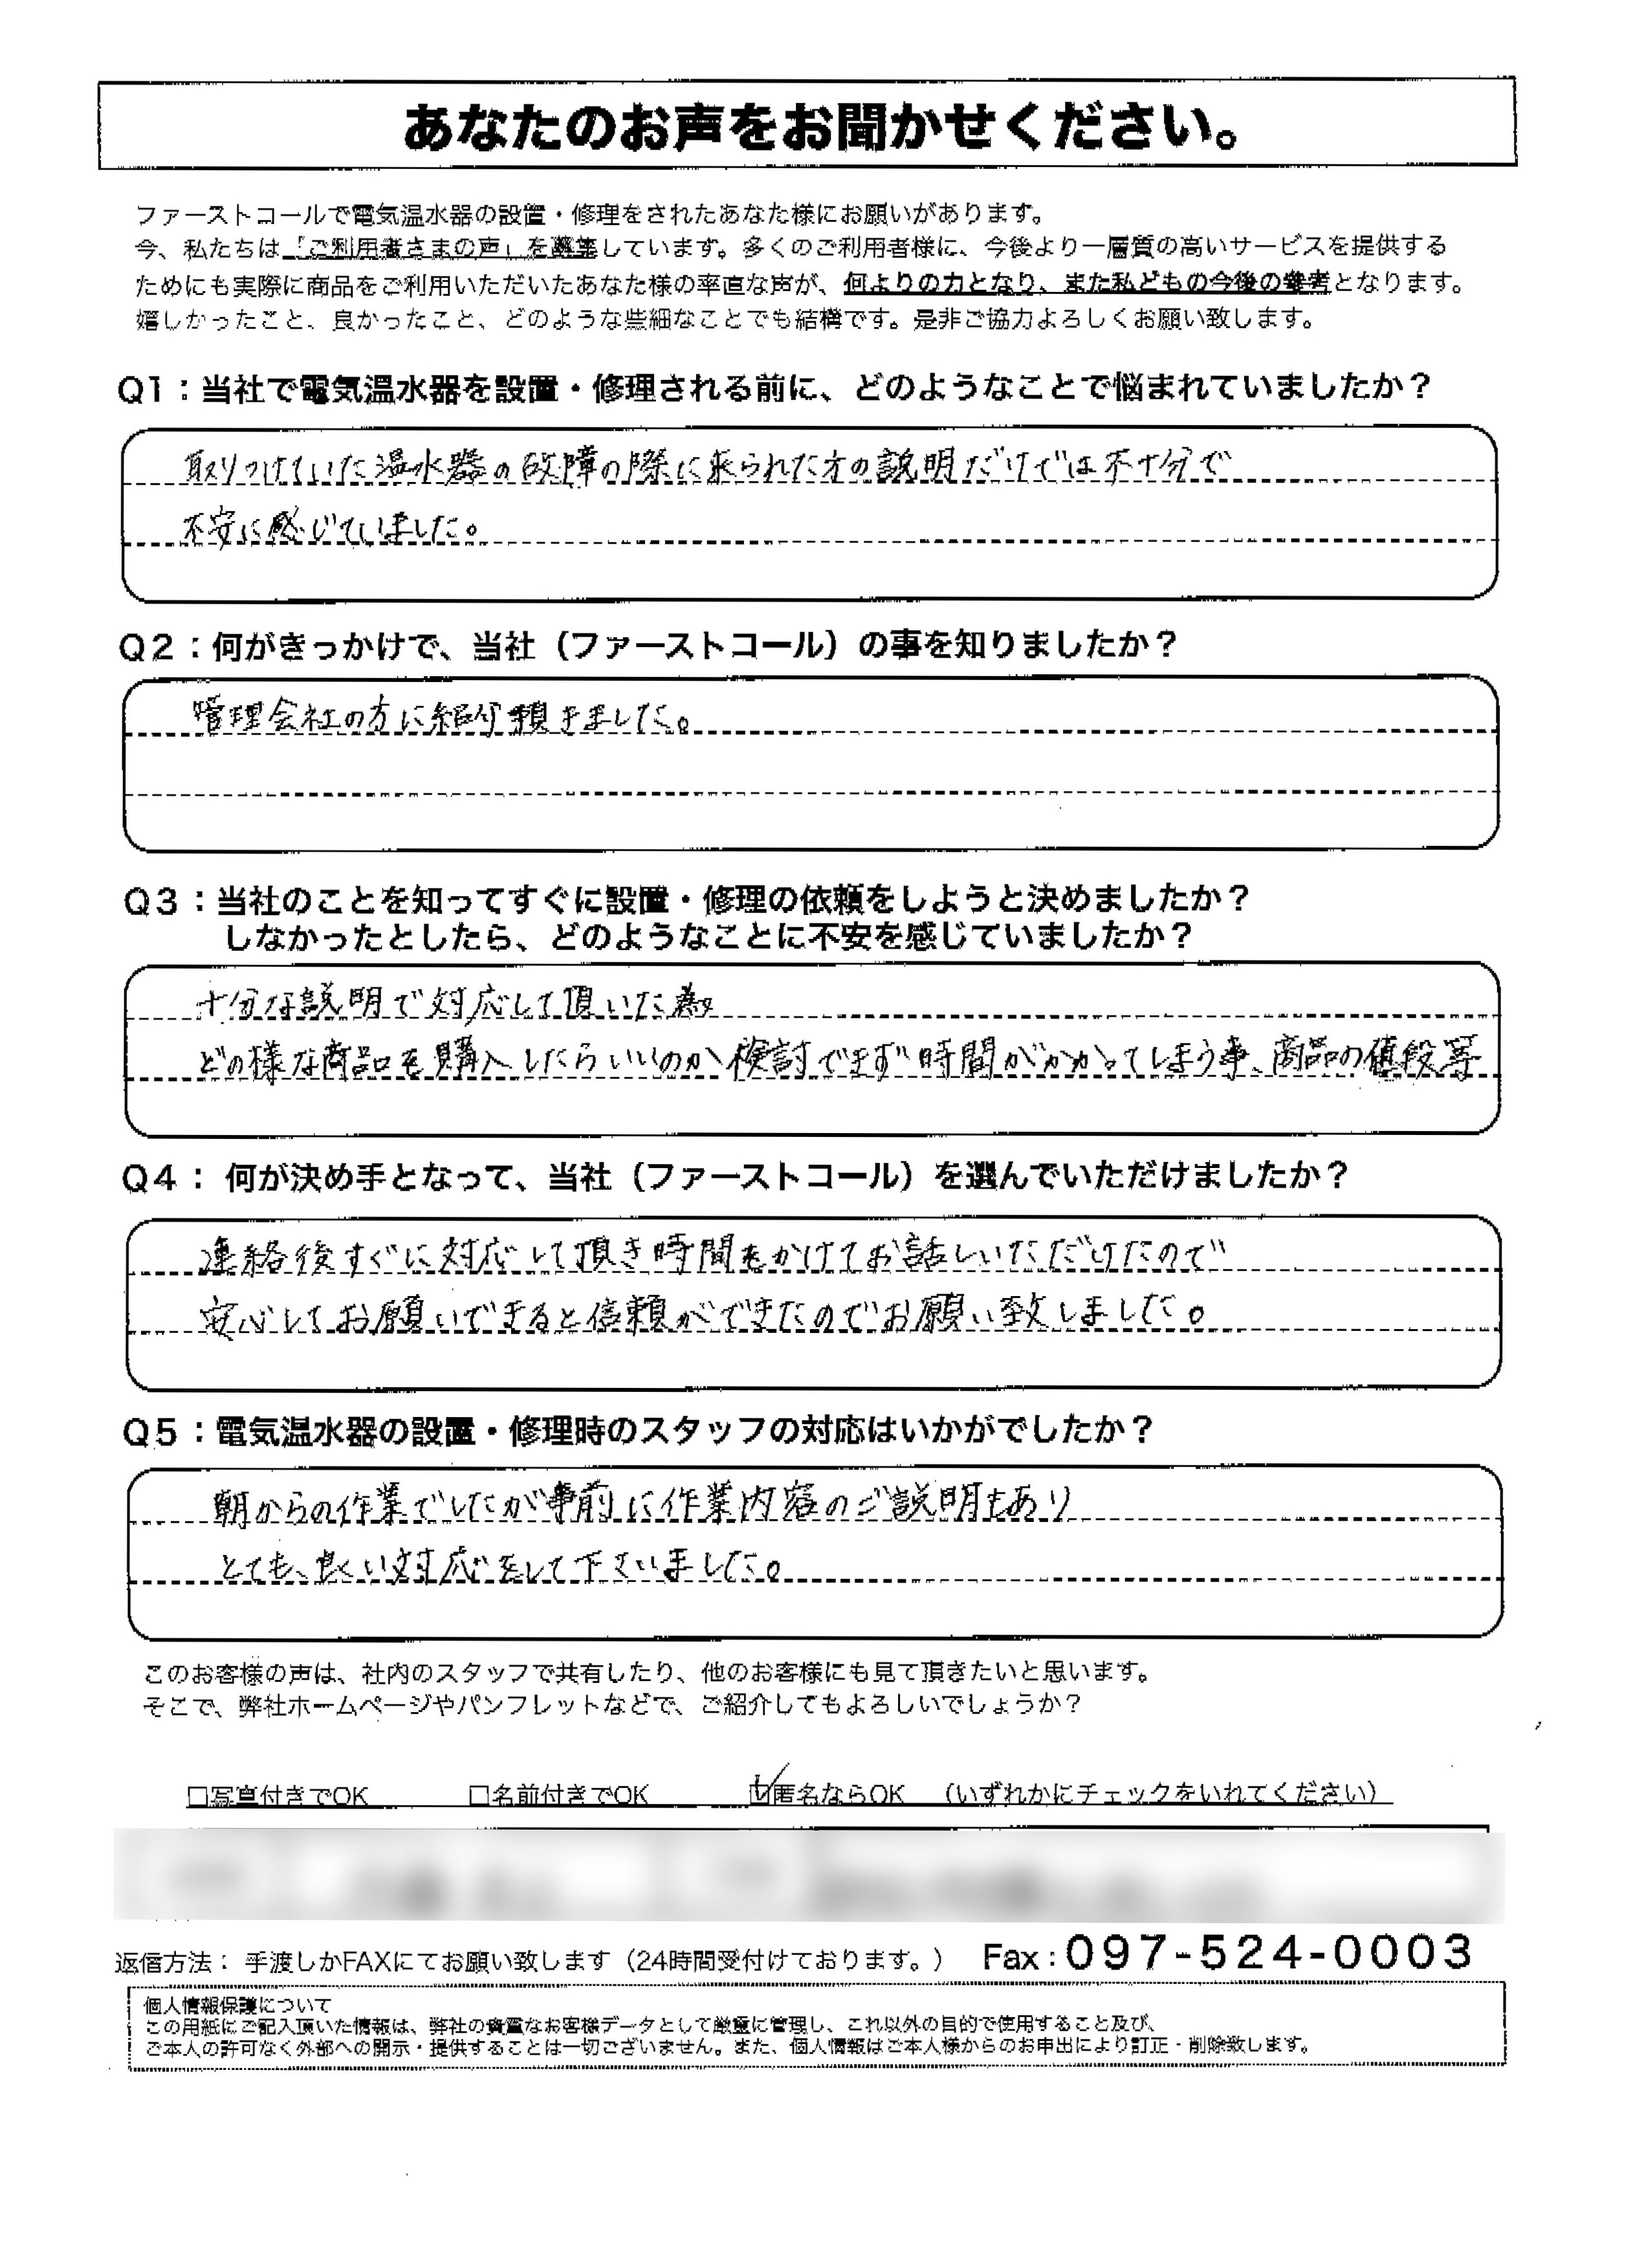 あなたのお声をお聞かせください。
ファーストコールで電気温水器の設置・修理をされたあなた様にお願いがあります。
今、私たちは「ご利用者さまの声」を募集しています。多くのご利用者様に、今後より一層質の高いサービスを提供する
ためにも実際に商品をご利用いただいたあなた様の率直な声が、何よりの力となり、また私どもの今後の参考となります。
嬉しかったこと、良かったこと、どのような些細なことでも結構です。是非ご協力よろしくお願い致します。
Q1：当社で電気温水器を設置・修理される前に、どのようなことで悩まれていましたか？
取りつけていた温水器の故障の際に来られた方の説明だけでは不十分で
不安に感じていました。
Q2：何がきっかけで、当社（ファーストコール）の事を知りましたか？
管理会社の方に紹介頂きました。
Q3：当社のことを知ってすぐに設置・修理の依頼をしようと決めましたか？
しなかったとしたら、どのようなことに不安を感じていましたか？
十分な説明で対応して頂いた為
どの様な商品を購入したらいいのか検討できず時間がかかってしまう事、商品の値段等
Q4： 何が決め手となって、当社（ファーストコール）を選んでいただけましたか？
連絡後すぐに対応して頂き時間をかけてお話しいただけたので
安心してお願いできると信頼ができたのでお願い致しました。
Q5：電気温水器の設置・修理時のスタッフの対応はいかがでしたか？
朝からの作業でしたが事前に作業内容のご説明もあり
とても、良い対応をして下さいました。
このお客様の声は、社内のスタッフで共有したり、他のお客様にも見て頂きたいと思います。
そこで、弊社ホームページやパンフレットなどで、ご紹介してもよろしいでしょうか？
□写真付きでOK □名前付きでOK ☑匿名ならOK （いずれかにチェックをいれてください）
返信方法： 手渡しかFAXにてお願い致します（24時間受付けております。） Fax：097-524-0003
個人情報保護について
この用紙にご記入頂いた情報は、弊社の貴重なお客様データとして厳重に管理し、これ以外の目的で使用すること及び、
ご本人の許可なく外部への開示・提供することは一切ございません。また、個人情報はご本人様からのお申出により訂正・削除致します。